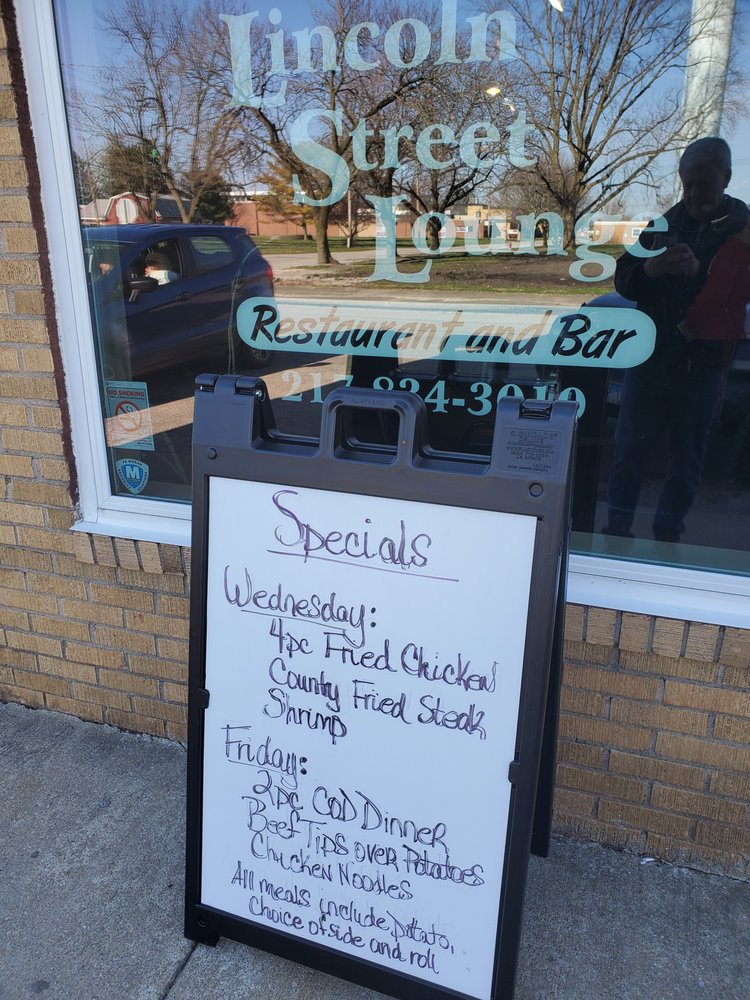 Lincoln
Street
Lounge
Restaurant and Bar
217-834-3019
NO SMOKING
M
Specials
Wednesday:
4pc Fried Chicken
County Fried Steak
Shrimp
Friday:
2pc COD Dinner
Beef Tips over Potatoes
Chicken Noodles
All meals include Potato,
Choice of side and roll